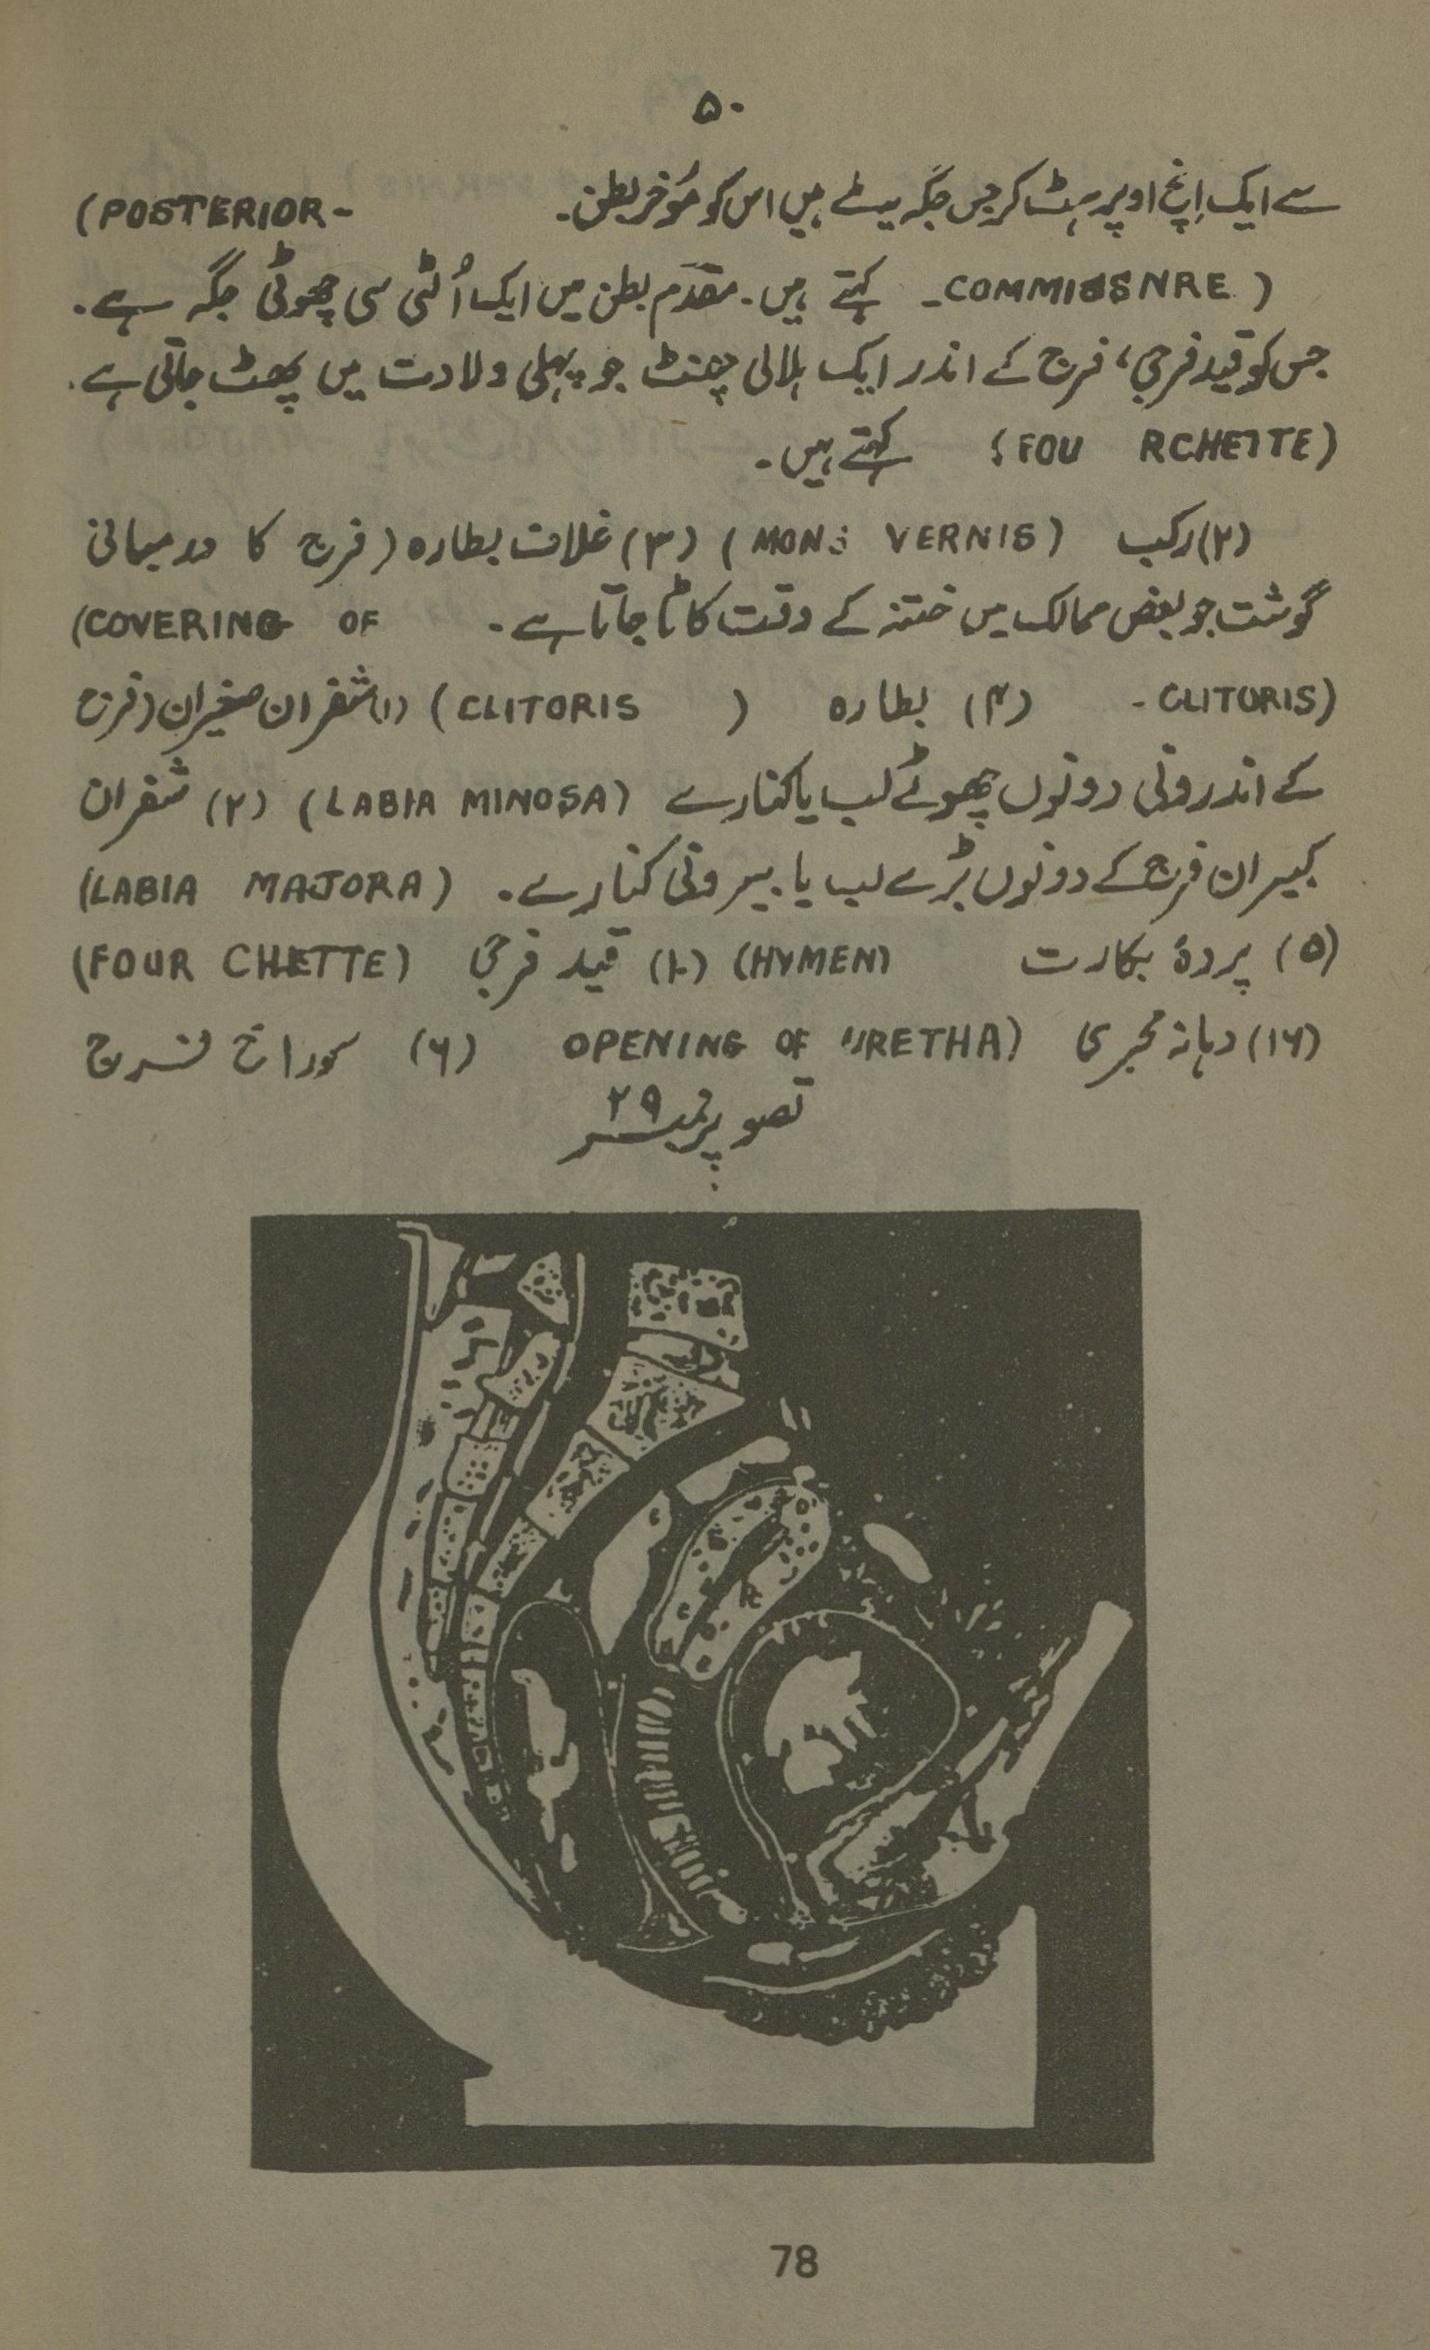 ۵۰
سے ایک اِنچ اوپر ہٹ کر جس جگہ میٹے ہیں اس کو مُؤخر بطن۔ (POSTERIOR-
COMMISSNRE ) ۔ کہتے ہیں۔ مقدّم بطن میں ایک اُلٹی سی چھوٹی جگہ ہے۔
جس کو قید فرجی، فرج کے اندر ایک ہلالی چھنٹ جو پہلی ولادت میں پھٹ جاتی ہے۔
(FOU RCHETTE) کہتے ہیں۔
(۲) رکب (MONS VERNIS) (۳) غلاف بطارہ (فرج کا درمیانی
گوشت جو بعض ممالک میں ختنہ کے وقت کاٹا جاتا ہے۔ (COVERING OF
CLITORIS) - (۴) بطارہ ( CLITORIS) (۱) شفران صغیران (فرج
کے اندرونی دونوں چھوٹے لب یا کنارے (LABIA MINOSA) (۲) شفران
کبیران فرج کے دونوں بڑے لب یا بیرونی کنارے۔ (LABIA MAJORA)
(۵) پردۂ بکارت (HYMEN) (۱۰) قید فرجی (FOUR CHETTE)
(۱۶) دہانہ مجری OPENING OF URETHA) (۶) سوراخ فرج
تصویر نمبر ۲۹
78